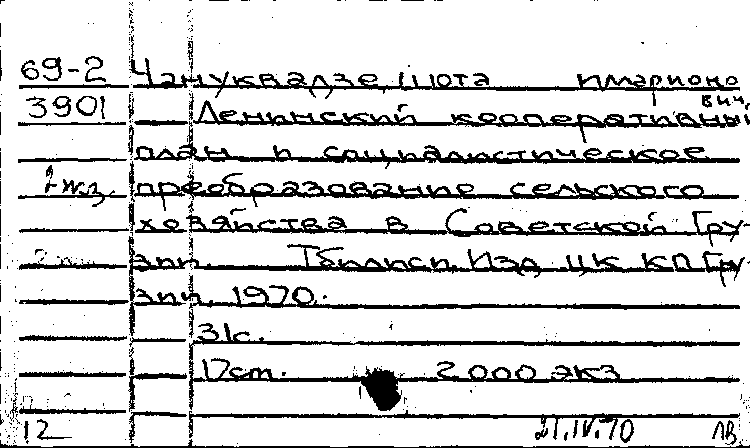 69-2 Чануквадзе, Шота Иларионо
3901 вич.
Ленинский кооперативный
план и социалистическое
2 экз. преобразование сельского
хозяйства в Советской Гру-
зии. Тбилиси, Изд. ЦК КП Гру-
зии, 1970.
31с.
17см. 2000 экз
12 21.IV.70 ЛВ